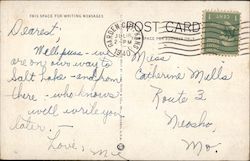 THIS SPACE FOR WRITING MESSAGES
POST CARD
GARDEN CITY
1940
KANS
Dearest:
Well puss - we
are on our way to
Salt Lake - and from
there - who knows
will write you
later.
Love,
Miss
Catherine Mills
Route 2
Neosho,
Mo.